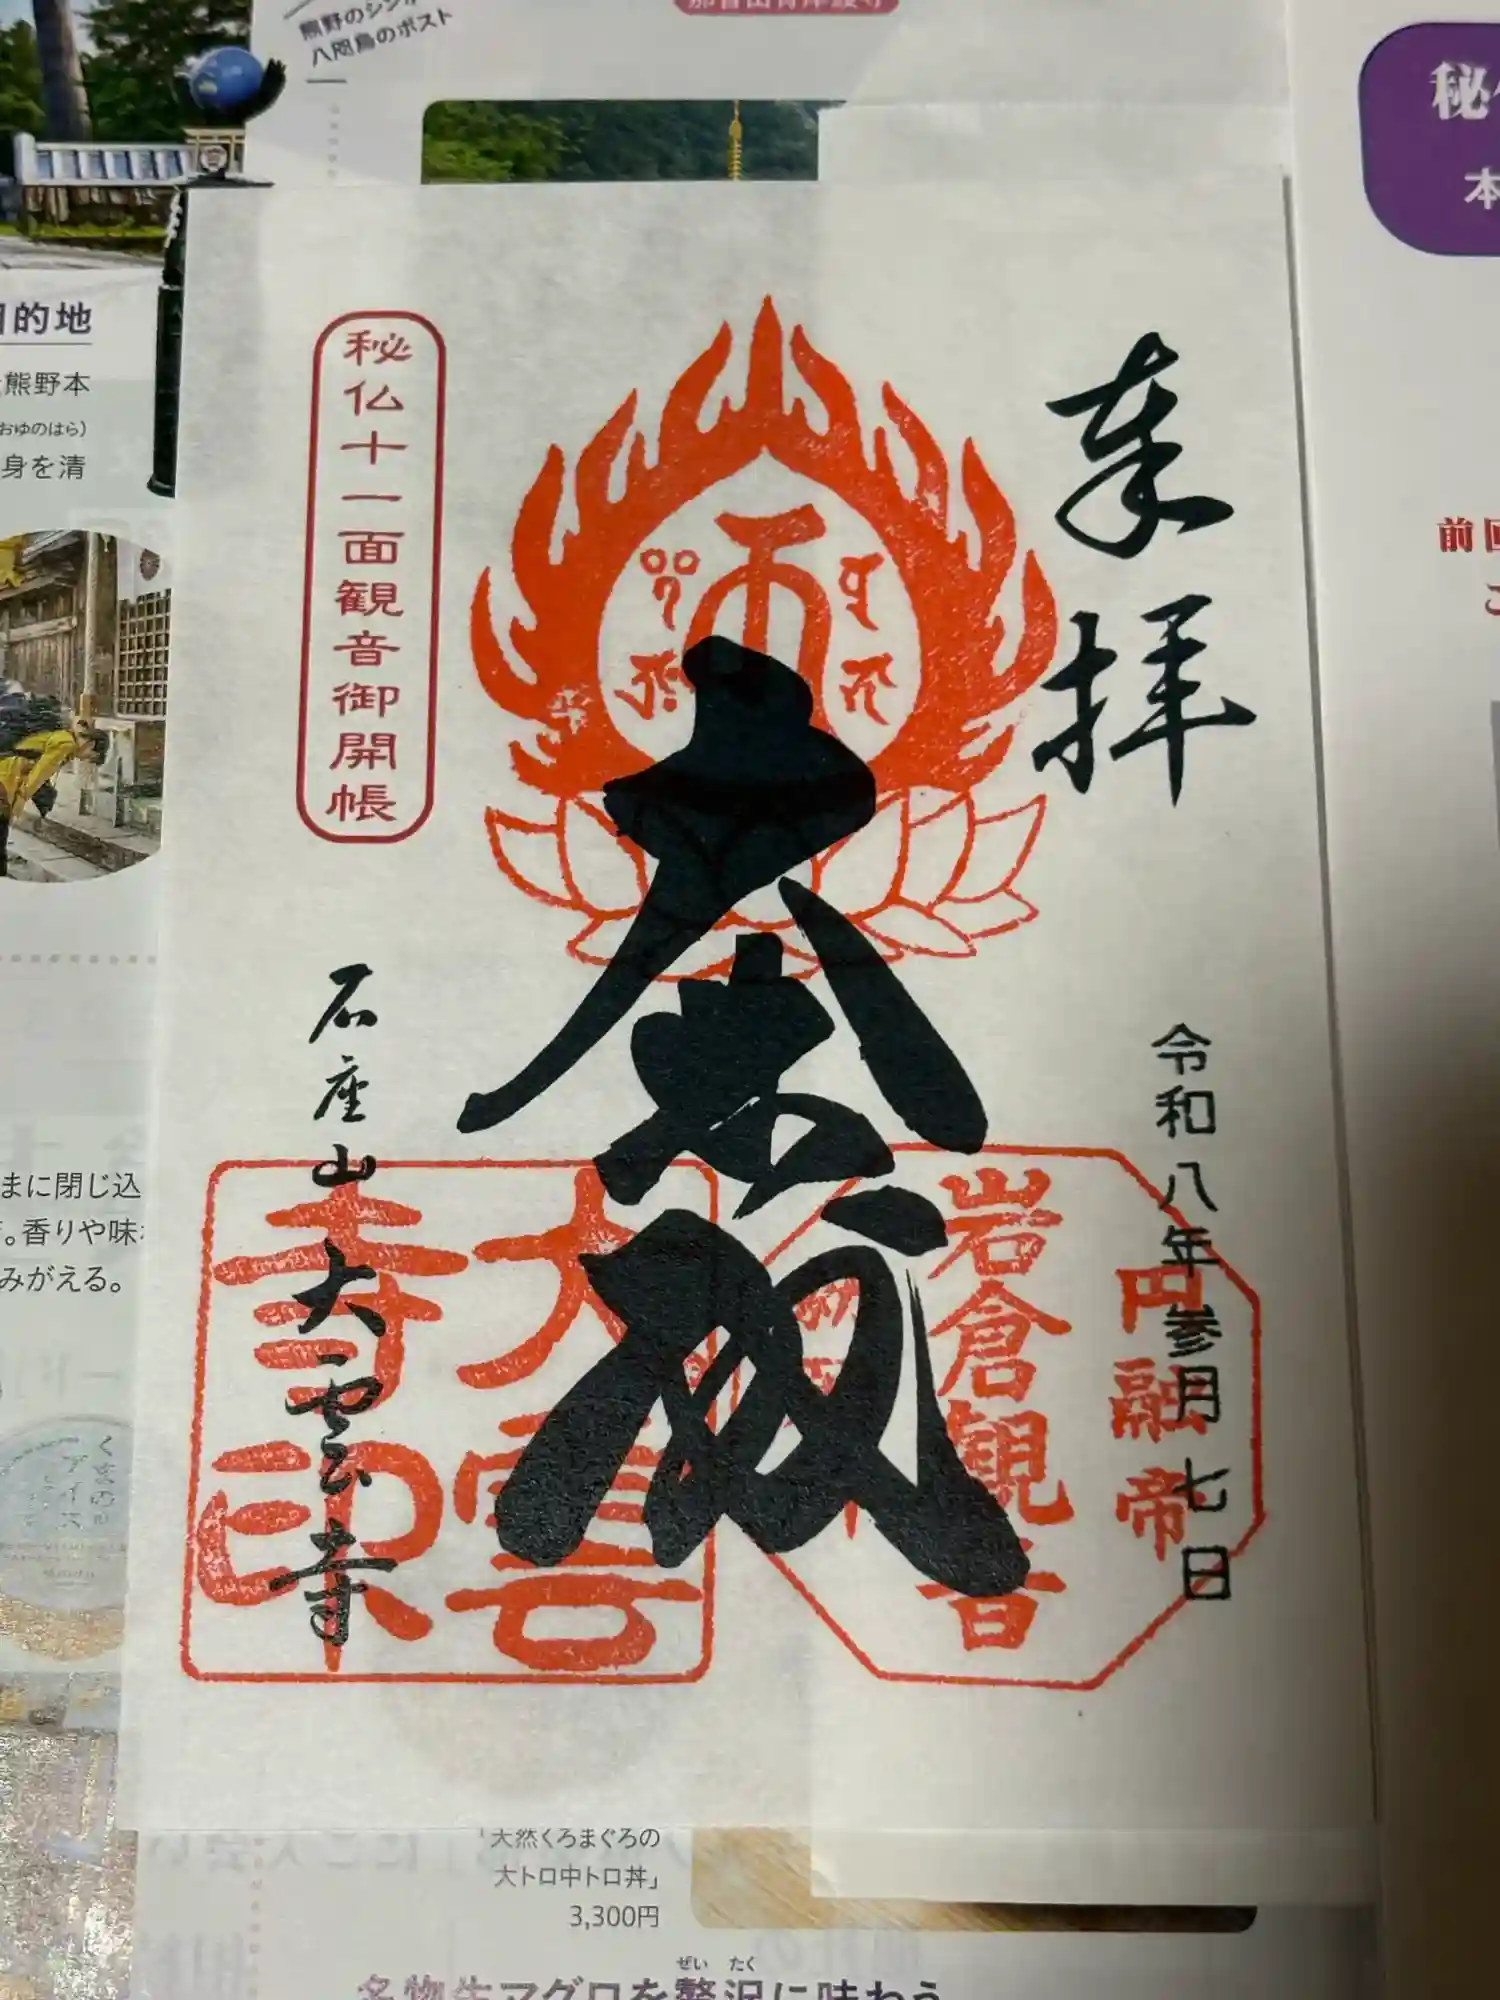 熊野のシンボ
八咫烏のポスト
的地
熊野本
おゆのはら）
身を清
まに閉じ込
。香りや味
みがえる。
秘
本
前回
こ
奉拝
令和八年参月七日
円融帝
岩倉観音
秘仏十一面観音御開帳
石座山大雲寺
大雲
寺印
「天然くろまぐろの
大トロ中トロ丼」
3,300円
ぜい たく
名物生マグロを贅沢に味わう